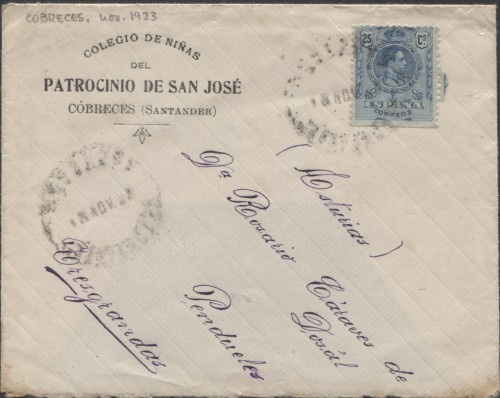 COBRECES, nov. 1923
COLEGIO DE NIÑAS
DEL
PATROCINIO DE SAN JOSÉ
CÓBRECES (SANTANDER)
25 Cs
CORREOS
NOV
NOV 2
(Asturias)
Dª Rosario Táraves de
Dosál
Pendueles
Tresgrandas